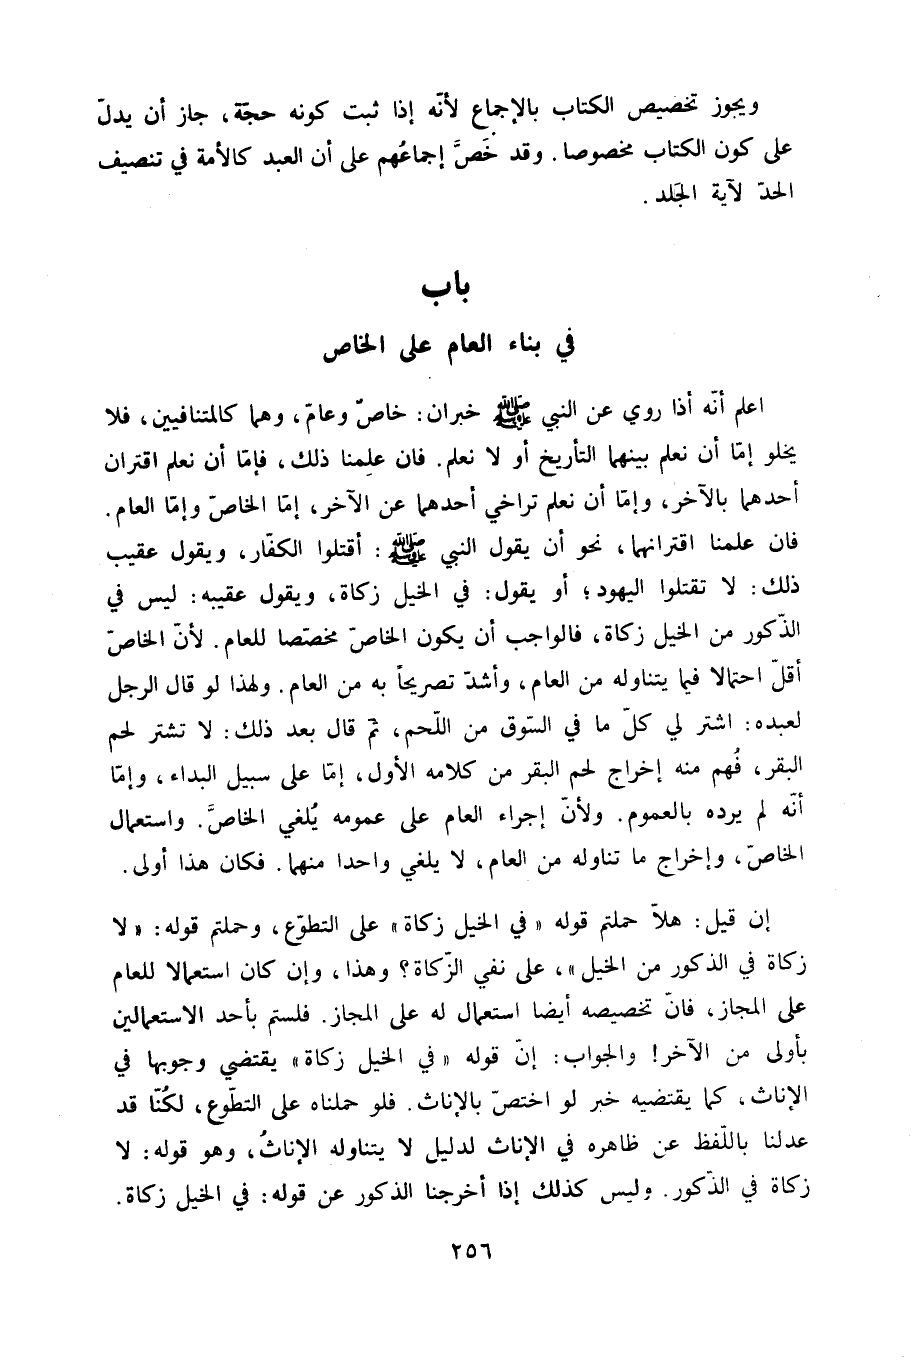 ويجوز تخصيص الكتاب بالإجماع لأنّه إذا ثبت كونه حجّة، جاز أن يدلّ
على كون الكتاب مخصوصا. وقد خَصَّ إجماعُهم على أن العبد كالأمة في تنصيف
الحدّ لآية الجَلد.
باب
في بناء العام على الخاص
اعلم أنّه أذا روي عن النبي ﷺ خبران: خاصّ وعامّ، وهما كالمتنافيين، فلا
يخلو إمّا أن نعلم بينهما التأريخ أو لا نعلم. فان علِمنا ذلك، فإمّا أن نعلم اقتران
أحدهما بالآخر، وإمّا أن نعلم تراخي أحدهما عن الآخر، إمّا الخاصّ وإمّا العام.
فان علمنا اقترانهما، نحو أن يقول النبي ﷺ : أقتلوا الكفّار، ويقول عقيب
ذلك: لا تقتلوا اليهود؛ أو يقول: في الخيل زكاة، ويقول عقيبه: ليس في
الذّكور من الخيل زكاة، فالواجب أن يكون الخاصّ مخصّصا للعام. لأنّ الخاصّ
أقلّ احتمالا فيما يتناوله من العام، وأشدّ تصريحاً به من العام. ولهذا لو قال الرجل
لعبده: اشتر لي كلّ ما في السّوق من اللّحم، ثمّ قال بعد ذلك: لا تشتر لحم
البقر، فُهم منه إخراج لحم البقر من كلامه الأول، إمّا على سبيل البداء، وإمّا
أنّه لم يرده بالعموم. ولأنّ إجراء العام على عمومه يُلغي الخاصَّ. واستعمال
الخاصّ، وإخراج ما تناوله من العام، لا يلغي واحدا منهما. فكان هذا أولى.
إن قيل: هلاّ حملتم قوله «في الخيل زكاة» على التطوّع، وحملتم قوله: «لا
زكاة في الذكور من الخيل»، على نفي الزّكاة؟ وهذا، وإن كان استعمالا للعام
على المجاز، فانّ تخصيصه أيضا استعمال له على المجاز. فلستم بأحد الاستعمالين
بأولى من الآخر! والجواب: إنّ قوله «في الخيل زكاة» يقتضي وجوبها في
الإناث، كما يقتضيه خبر لو اختصّ بالإناث. فلو حملناه على التطّوع، لكُنّا قد
عدلنا باللّفظ عن ظاهره في الإناث لدليل لا يتناوله الإناثُ، وهو قوله: لا
زكاة في الذّكور. وليس كذلك إذا أخرجنا الذكور عن قوله: في الخيل زكاة.
٢٥٦